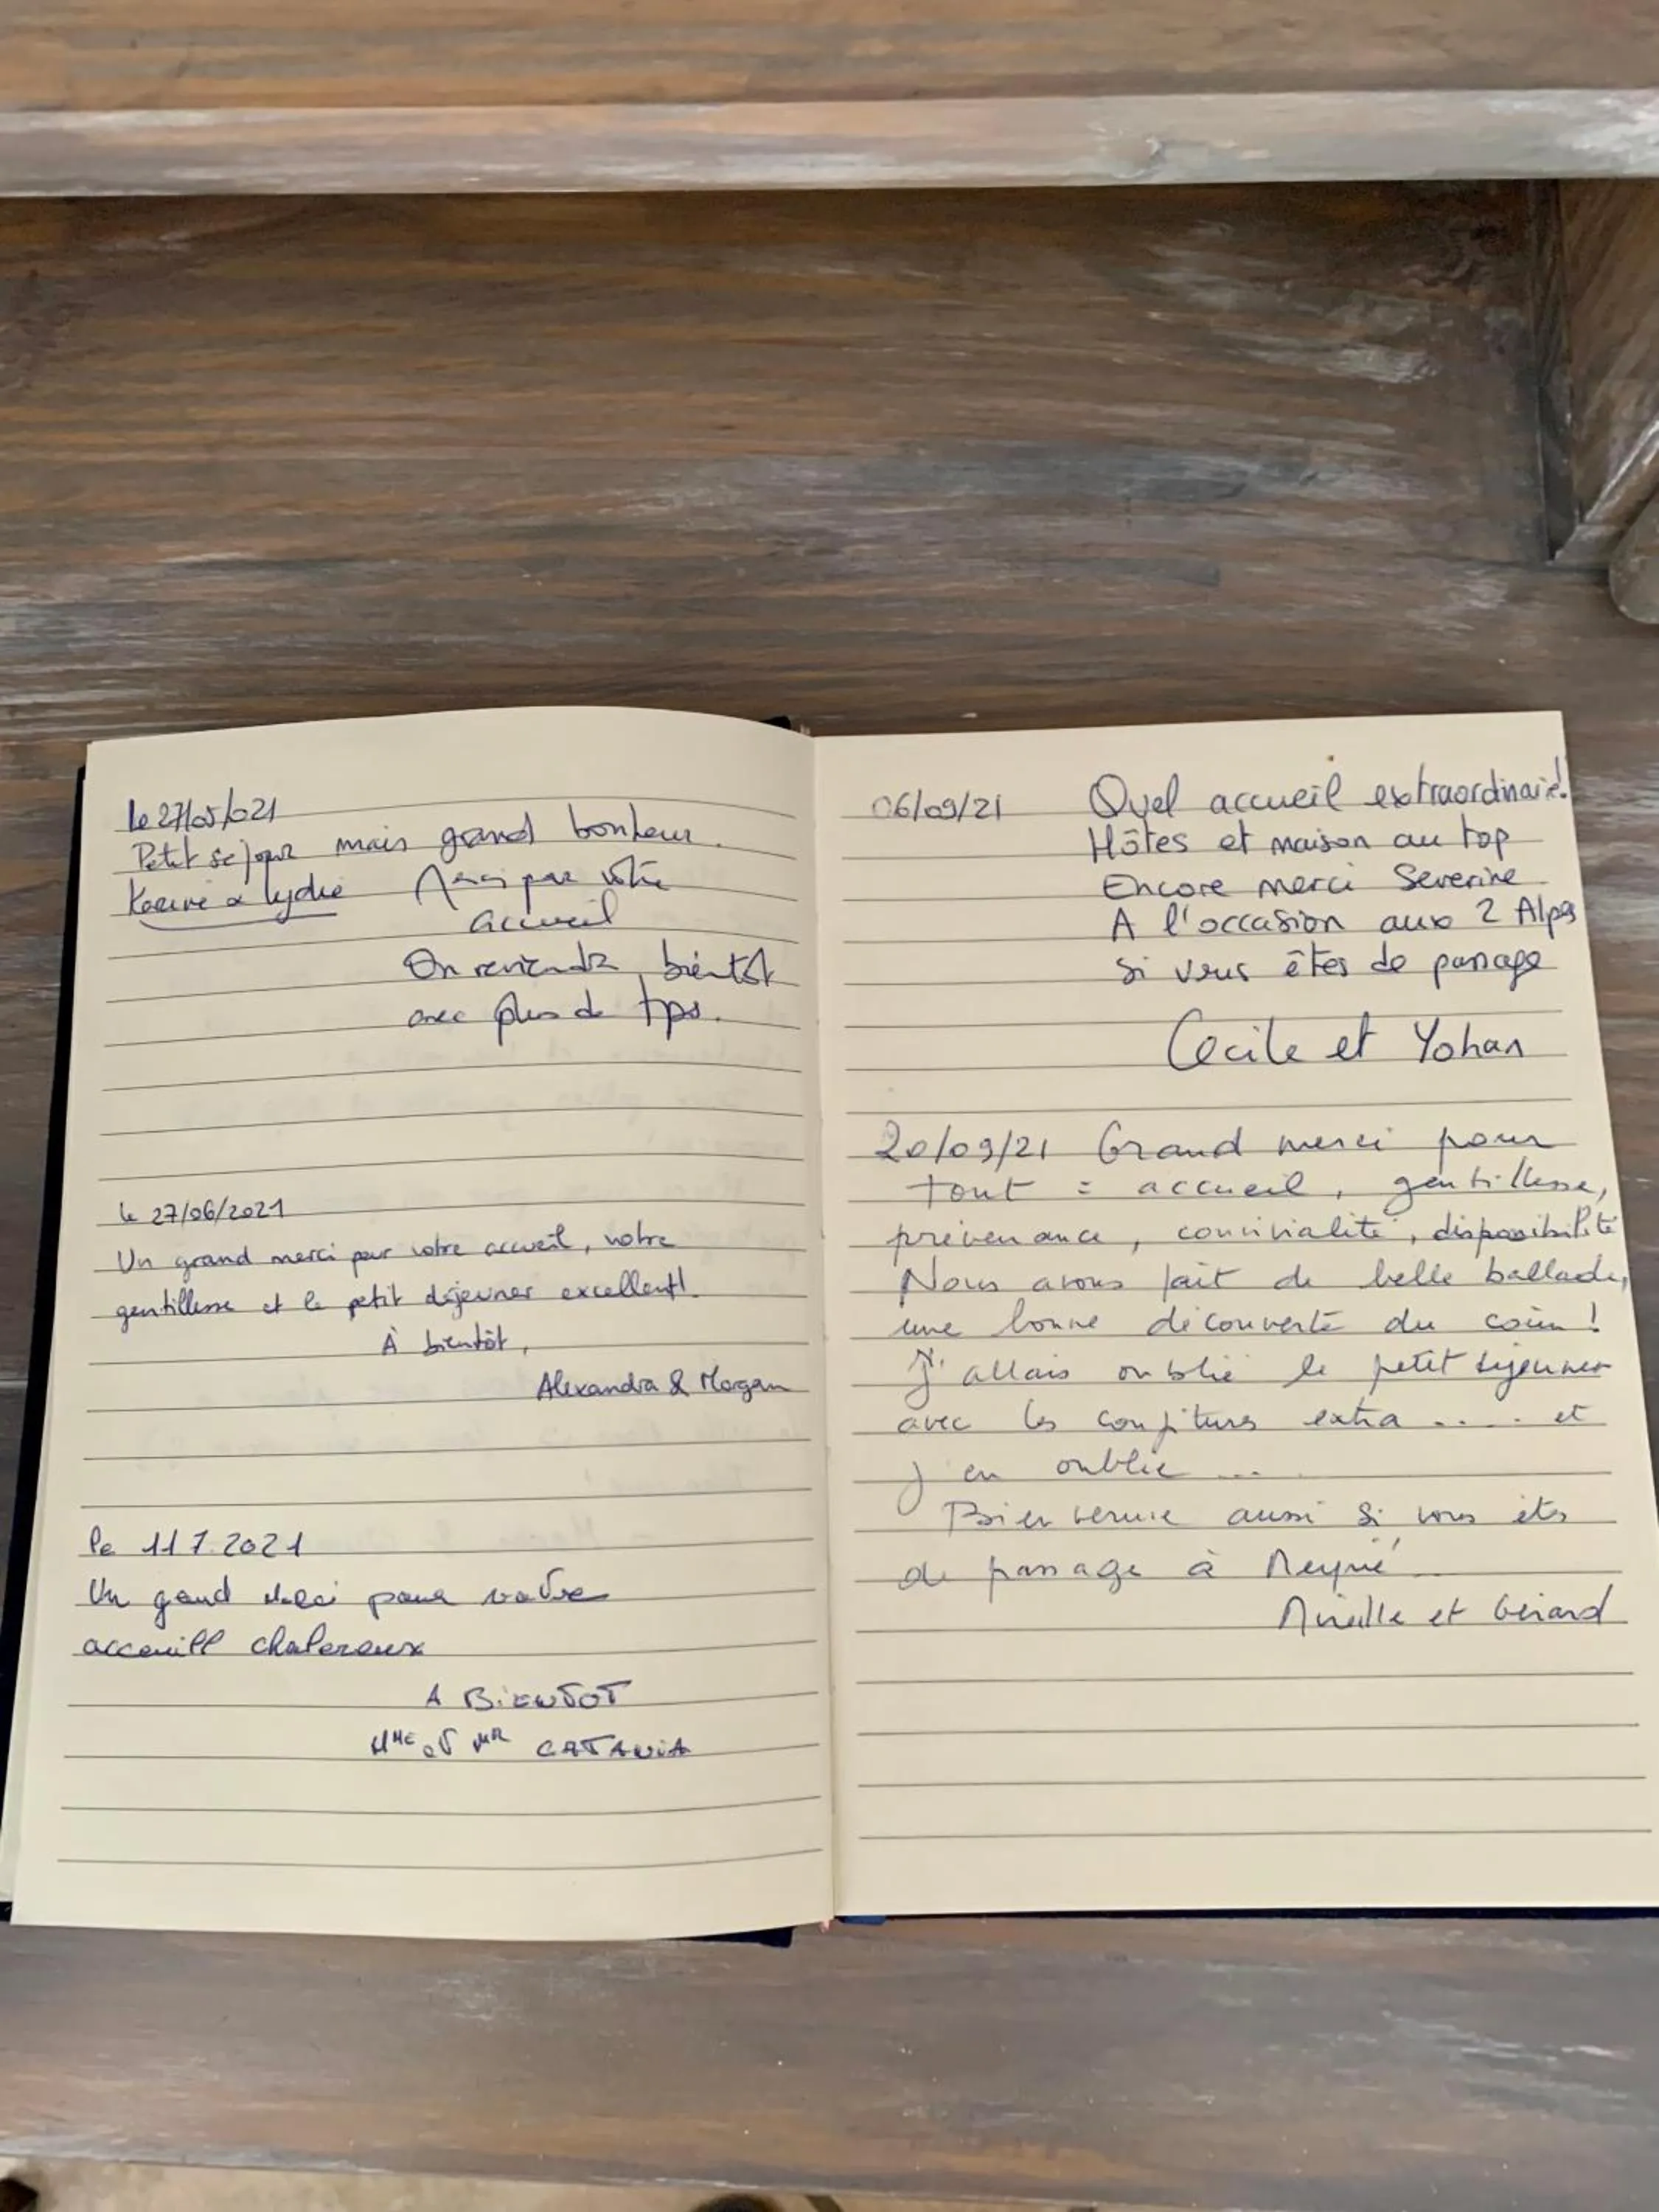 le 27/05/021
Petit séjour mais grand bonheur.
Karine & Lydie Merci pour votre
accueil
On reviendra bientôt
avec plus de tps.
le 27/06/2021
Un grand merci pour votre accueil, votre
gentillesse et le petit déjeuner excellent!
À bientôt,
Alexandra & Morgan
le 11 7.2021
Un grand merci pour votre
acceuill chalereux
A BIENTOT
MME et MR CATANIA
06/09/21 Quel accueil extraordinaire!
Hôtes et maison au top
Encore merci Severine
A l'occasion aux 2 Alpes
si vous êtes de passage
Cecile et Yohan
20/09/21 Grand merci pour
tout : accueil, gentillesse,
prévenance, convivialité, disponibilité
Nous avons fait de belle ballade,
une bonne découverte du coin!
J'allais oublié le petit déjeuner
avec les confitures extra .... et
j'en oublie ...
Bienvenue aussi si vous êtes
de passage à Meyrié
Mireille et Gérard